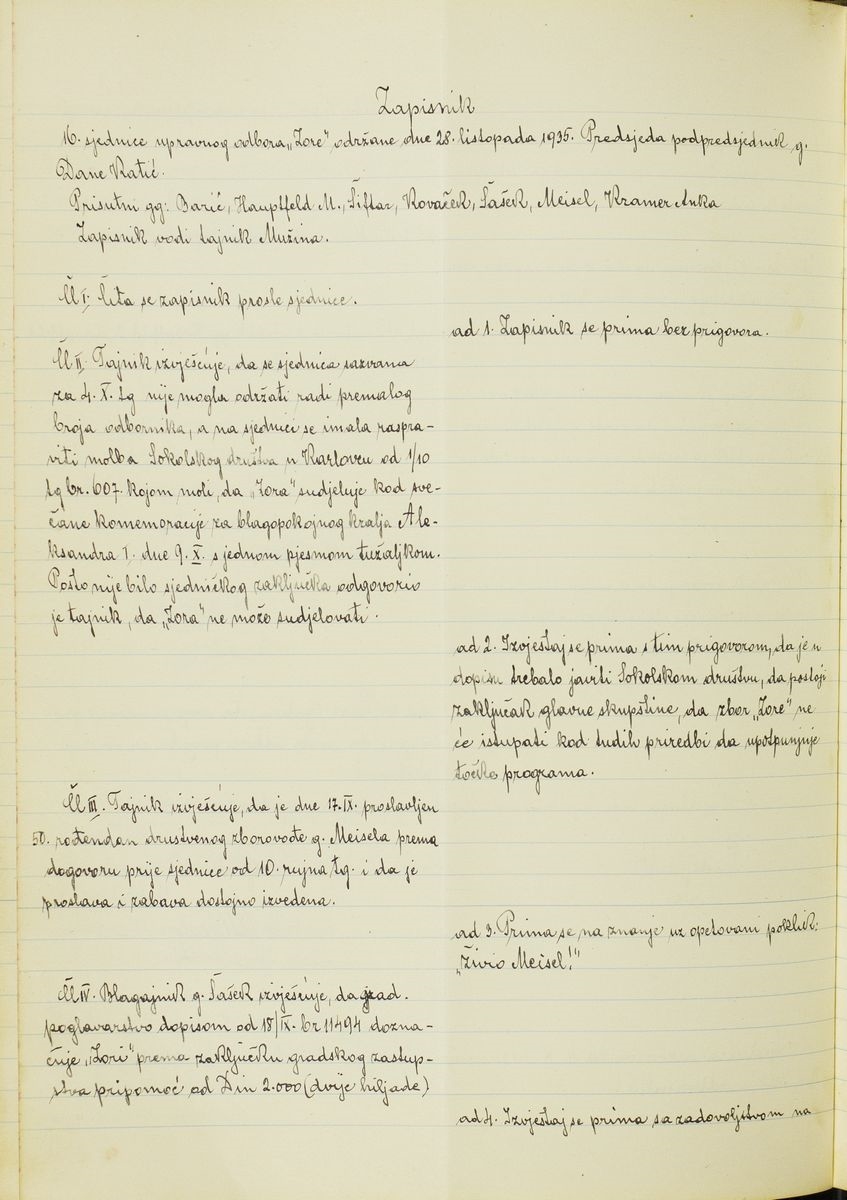 Zapisnik
16. sjednice upravnog odbora „Zore" održane dne 28. listopada 1935. Predsjeda podpredsjednik g.
Dane Katić.
Prisutni gg: Barić, Hauptfeld M., Šiftar, Kovaček, Šašek, Meisel, Kramer Anka
Zapisnik vodi tajnik Mužina.
Čl I. Čita se zapisnik prosle sjednice.
ad 1. Zapisnik se prima bez prigovora.
Čl II. Tajnik izvješćuje, da se sjednica sazvana
za 4. X. tg nije mogla održati radi premalog
broja odbornika, a na sjednici se imala raspra-
viti molba Sokolskog društva u Karlovcu od 1/10
tg br. 607. kojom moli, da „Zora" sudjeluje kod sve-
čane komemoracije za blagopokojnog kralja Ale-
ksandra I. dne 9. X. s jednom pjesmom tužaljkom.
Pošto nije bilo sjedničkog zaključka odgovorio
je tajnik, da „Zora" ne može sudjelovati.
ad 2. Izvještaj se prima s tim prigovorom, da je u
dopisu trebalo javiti Sokolskom društvu, da postoji
zaključak glavne skupštine, da zbor „Zore" ne
će istupati kod tuđih priredbi da upotpunjuje
točke programa.
Čl III. Tajnik izvješćuje, da je dne 17. IX. proslavljen
50. rođendan društvenog zborovođe g. Meisela prema
dogovoru prije sjednice od 10. rujna tg. i da je
proslava i zabava dostojno izvedena.
ad 3. Prima se na znanje uz opetovani poklik:
„Živio Meisel!"
Čl IV. Blagajnik g. Šašek izvješćuje, da grad.
poglavarstvo dopisom od 18/IX. br 11494 dozna-
čuje „Zori" prema zaključku gradskog zastup-
stva pripomoć od Din 2.000 (dvije hiljade)
ad 4. Izvještaj se prima sa zadovoljstvom na